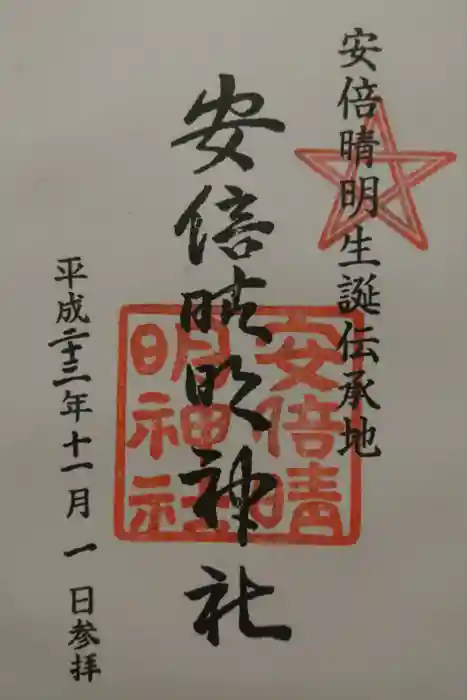 安倍晴明生誕伝承地
安倍晴明神社
安倍晴
明神社
平成二十三年十一月一日参拝